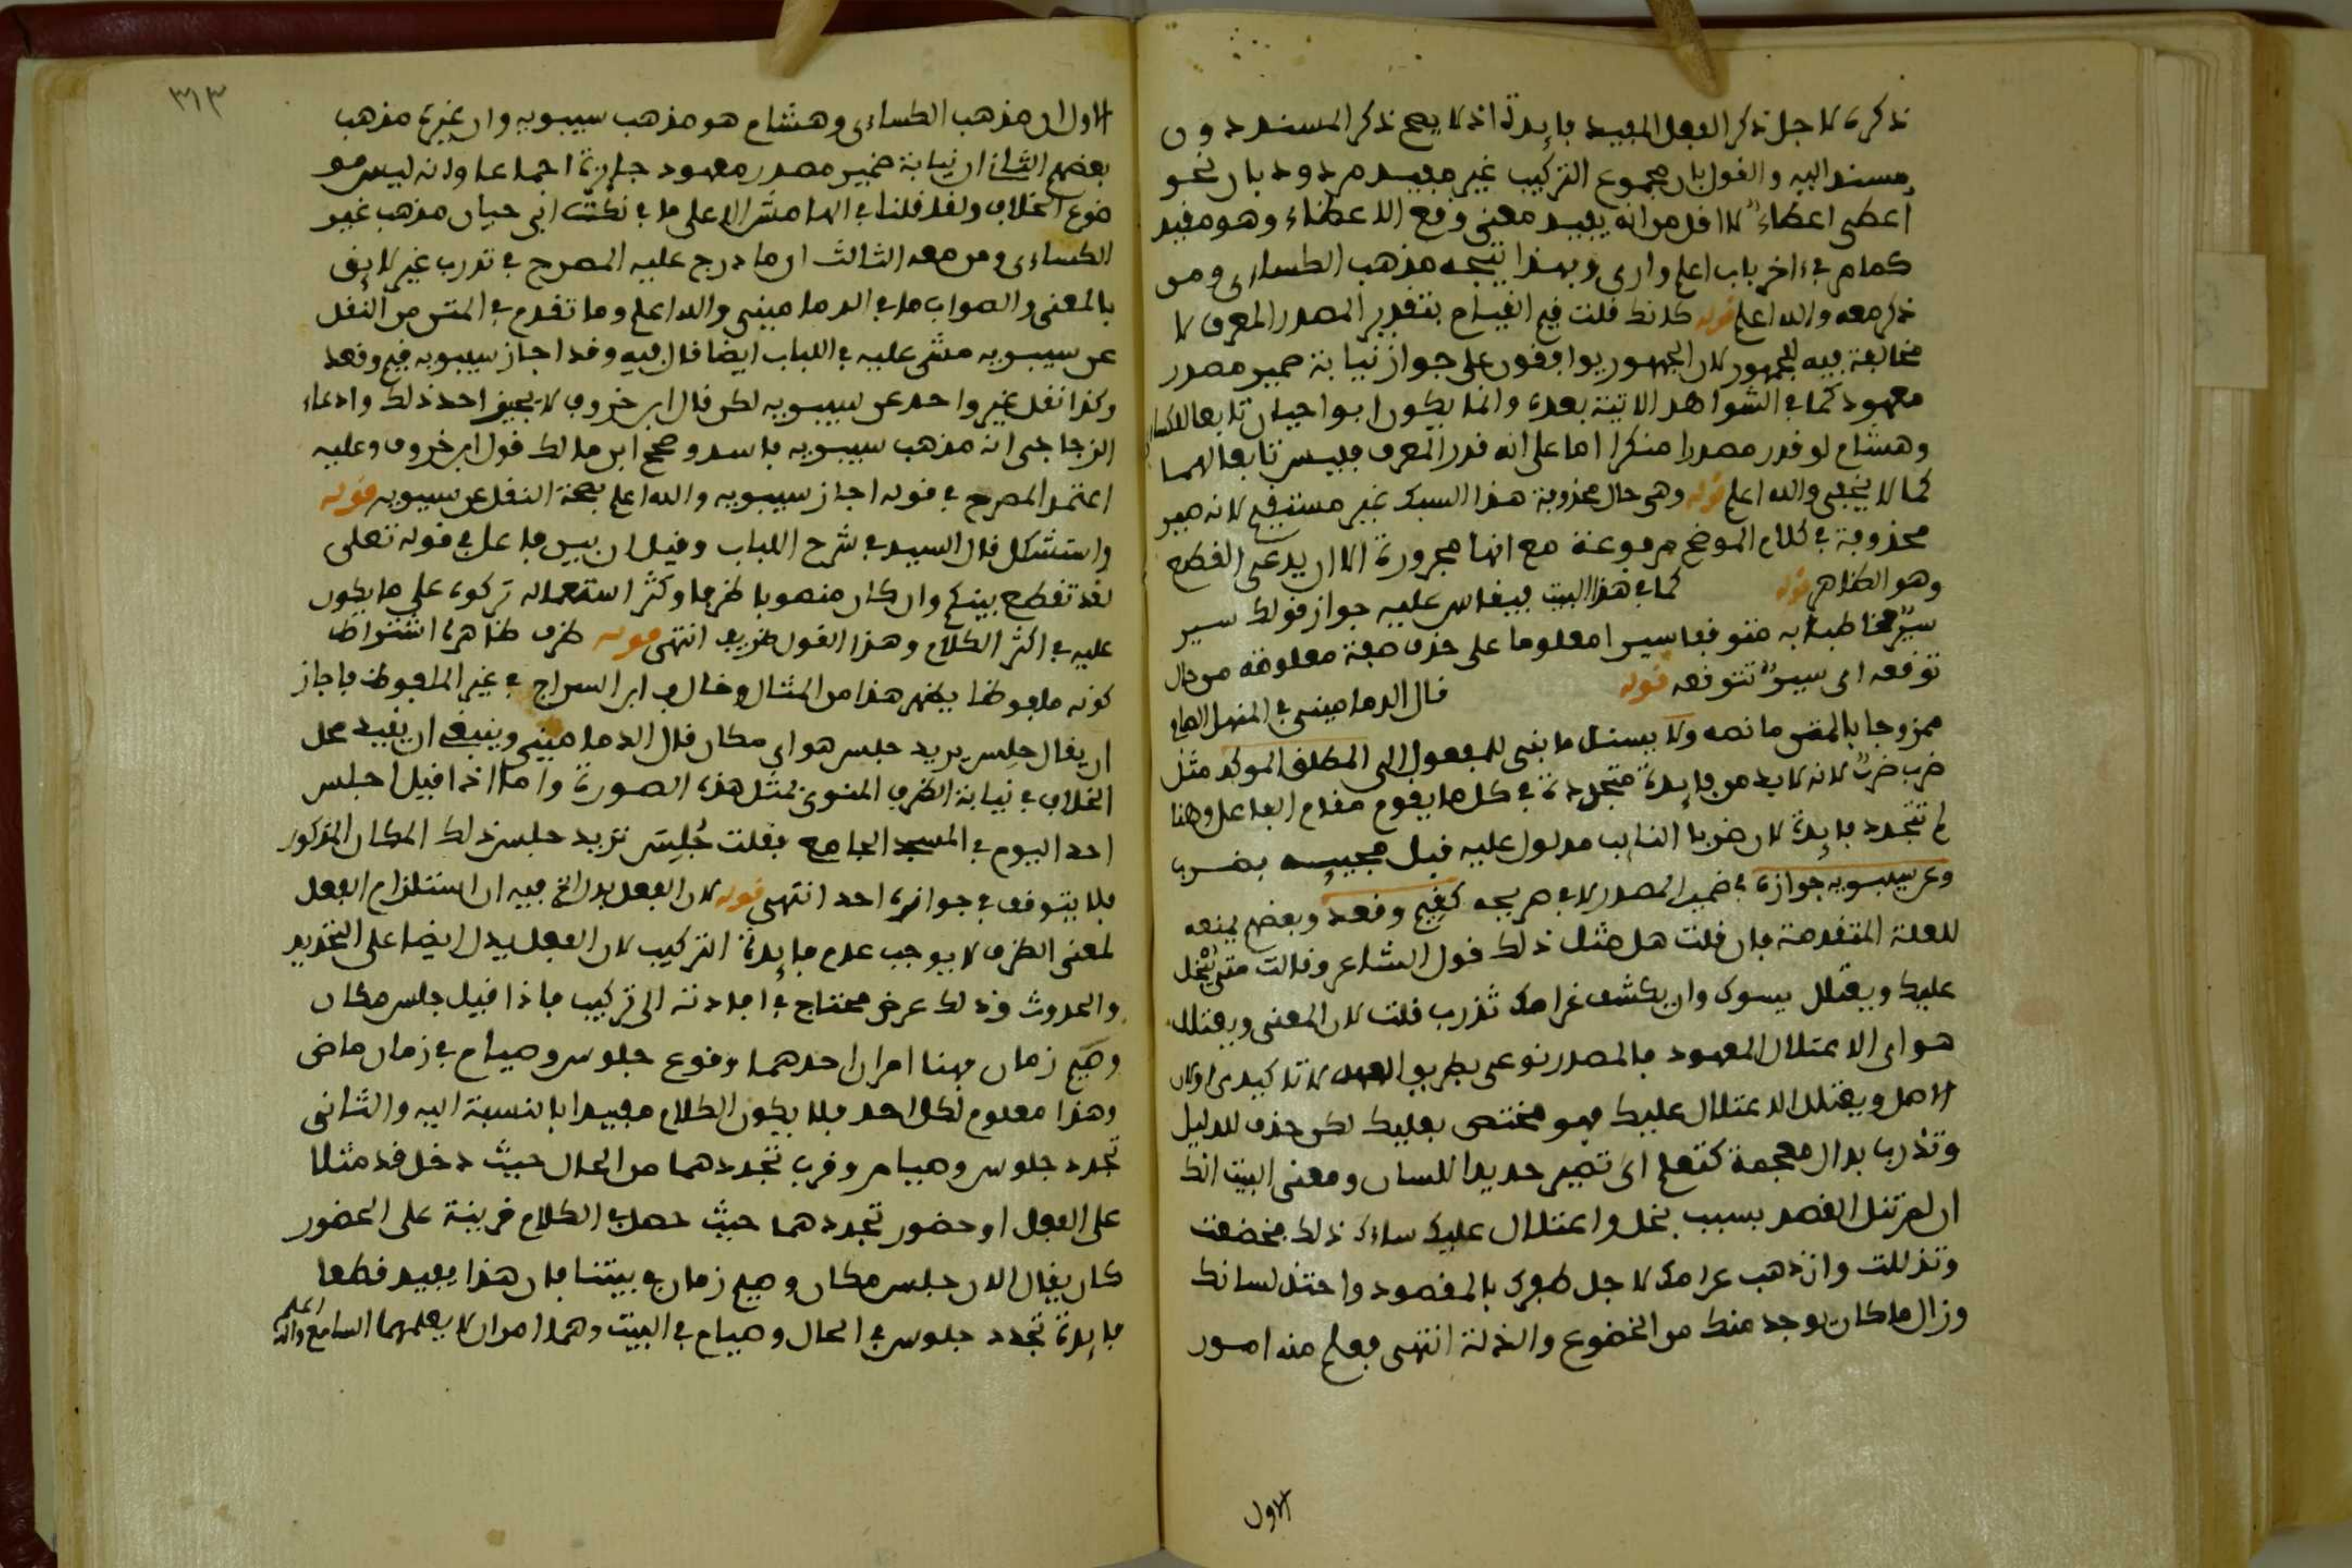 ذكره لاجل ذكر الفعل المفيد فايدة اذ لا يصح ذكر المسند دون
مسند اليه والقول بان مجموع التركيب غير مفيد مردود بان نحو
اعطى اعطاء لا اقل من انه يفيد معنى وقع الاعطاء وهو مفيد
كما مر في ءاخر باب اعلم وارى وبهذا يتجه مذهب الكساءى ومن
ذكر معه والله اعلم قوله كانك قلت فيم القيام بتقدير المصدر المعرف لا
مخالفة فيه للجمهور لان الجمهور يوافقون على جواز نيابة ضمير مصدر
معهود كما في الشواهد الاتية بعده وانما يكون ابوا حيان تابعا للكساى
وهشام لو قدر مصدرا منكرا اما على انه قدر المعرف فليس تابعا لهما
كما لا يخفى والله اعلم قوله وهى حال محذوفة هذا السبك غير مستقيم لانه صير
محذوفة في كلام الموضح مرفوعة مع انها مجرورة الا ان يدعى القطع
وهو الظاهر قوله كما في هذا البيت فيقاس عليه جواز قولك سير
سير مخاطبا به متوقعا سيرا معلوما على حذف صفة معلومة من حال
توقعه اى سير تتوقعه قوله قال الدمامينى في المنهل الصاف
ممزوجا بالمتن ما نصه ولا يسند ما بنى للمفعول الى المطلق الموكد مثل
ضرب ضرب لانه لا بد من فايدة متجددة في كل ما يقوم مقام الفاعل وهنا
لم تتجدد فايدة لان ضربا النايب مدلول عليه قبل مجييه بضرب
وعن سيبويه جوازه في ضمير المصدر لا في صريحه كقيم وقعد وبعضهم يمنعه
للعلة المتقدمة فان قلت هل مثل ذلك قول الشاعر وقالت متى يبخل
عليك ويعتلل يسوك وان يكشف غرامك تذرب قلت لان المعنى ويعتلل
هو اى الاعتلال المعهود فالمصدر نوعى بطريق العهد لا تاكيدى او كان
الاصل ويعتلل الاعتلال عليك فهو مختص بعليك لكن حذف للدليل
وتذرب بذال معجمة كتعلم اى تصير حديد اللسان ومعنى البيت انك
ان لم تنل القصد بسبب بخل واعتلال عليك ساءك ذلك فخضعت
وتذللت وان ذهب غرامك لاجل ظفرك بالمقصود واحتذ لسانك
وزال ما كان يوجد منك من الخضوع والذلة انتهى فعلم منه امور
الاول
٣١٣
الاول ان مذهب الكساءى وهشام هو مذهب سيبويه وان غيره مذهب
بعضهم الثانى ان نيابة ضمير مصدر معهود جايزة اجماعا وانه ليس مو
ضوع الخلاف ولقد قلنا في الهامش الاعلى ما في نكت ابى حيان مذهب غير
الكساءى ومن معه الثالث ان ما درج عليه المصرح في تذرب غير لايق
بالمعنى والصواب ما في الدمامينى والله اعلم وما تقدم في المتن من النقل
عن سيبويه مشى عليه في اللباب ايضا قال فيه وقد اجاز سيبويه قيم وقعد
وكذا نقل غير واحد عن سيبويه لكن قال ابن خروف لا يجيز احد ذلك وادعاء
الزجاجى انه مذهب سيبويه فاسد وصحح ابن مالك قول ابن خروف وعليه
اعتمد المصرح في قوله اجاز سيبويه والله اعلم بصحة النقل عن سيبويه قوله
واستشكل قال السيد في شرح اللباب وقيل ان بين فاعل في قوله تعلى
لقد تقطع بينكم وان كان منصوبا ظرفا وكثر استعماله تركوه على ما يكون
عليه في اكثر الكلام وهذا القول ظريف انتهى قوله ظرف ظاهره اشتراط
كونه ملفوظا يظهر هذا من المثال وخالف ابن السراج في غير الملفوظ فاجاز
ان يقال جلس يريد جلس هو اى مكان قال الدمامينى وينبغى ان يقيد محل
الخلاف في نيابة الظرف المنوى بمثل هذه الصورة واما اذا قيل اجلس
احد اليوم في المسجد الجامع فقلت جُلِسَ تريد جلس ذلك المكان المذكور
فلا يتوقف في جوازه احد انتهى قوله لان الفعل يدل الخ فيه ان استلزام الفعل
لمعنى الظرف لا يوجب عدم فايدة التركيب لان الفعل يدل ايضا على التجديد
والحدوث وذلك عرض محتاج في افادته الى تركيب فاذا قيل جلس مكان
وصيم زمان فهنا امران احدهما وقوع جلوس وصيام في زمان ماضى
وهذا معلوم لكل احد فلا يكون الكلام مفيدا بالنسبة اليه والثانى
تجدد جلوس وصيام وقرب تجددهما من الحال حيث دخل قد مثلا
على الفعل او حضور تجددهما حيث حصل في الكلام قرينة على الحضور
كان يقال الان جلس مكان وصيم زمان في بيتنا فان هذا يفيد قطعا
فايدة تجدد جلوس في الحال وصيام في البيت وهما امران لا يعلمهما السامع والله اعلم